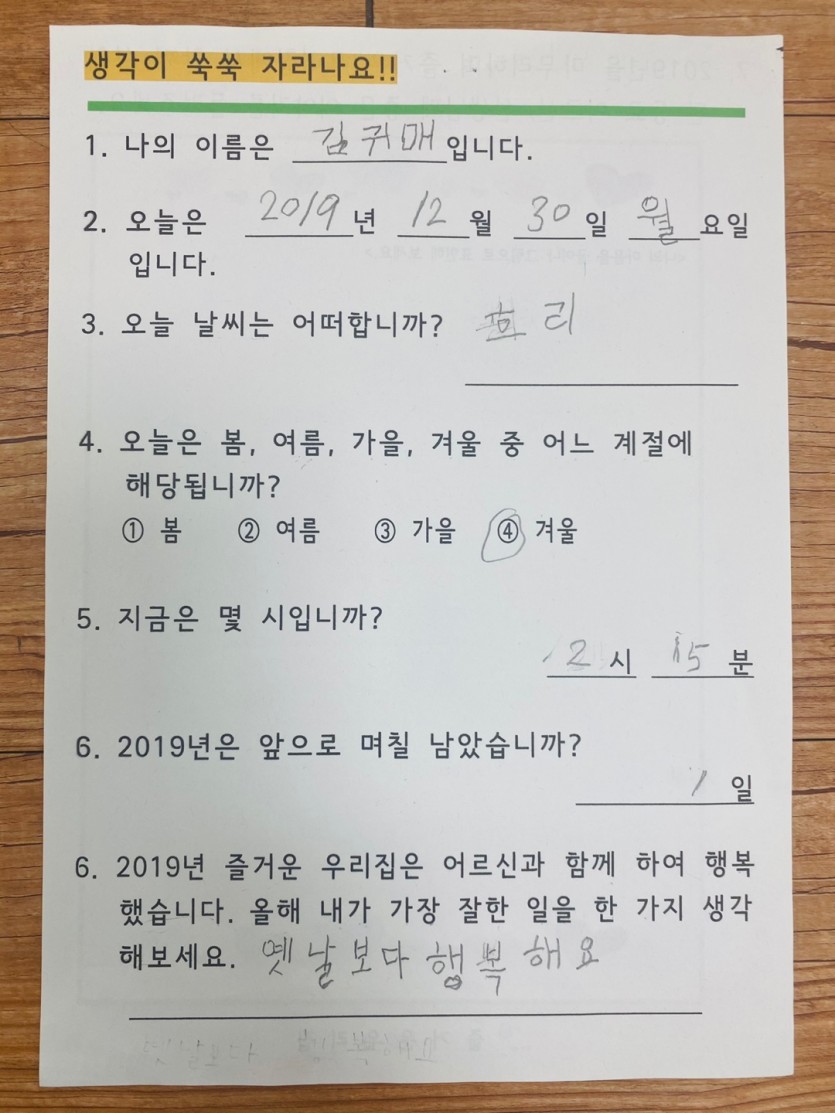 생각이 쑥쑥 자라나요!!
1. 나의 이름은 김귀매입니다.
2. 오늘은 2019년 12월 30일 월요일
입니다.
3. 오늘 날씨는 어떠합니까? 흐리
4. 오늘은 봄, 여름, 가을, 겨울 중 어느 계절에
해당됩니까?
① 봄 ② 여름 ③ 가을 ④ 겨울
5. 지금은 몇 시입니까?
2시 15분
6. 2019년은 앞으로 며칠 남았습니까?
1 일
6. 2019년 즐거운 우리집은 어르신과 함께 하여 행복
했습니다. 올해 내가 가장 잘한 일을 한 가지 생각
해보세요. 옛날보다 행복해요